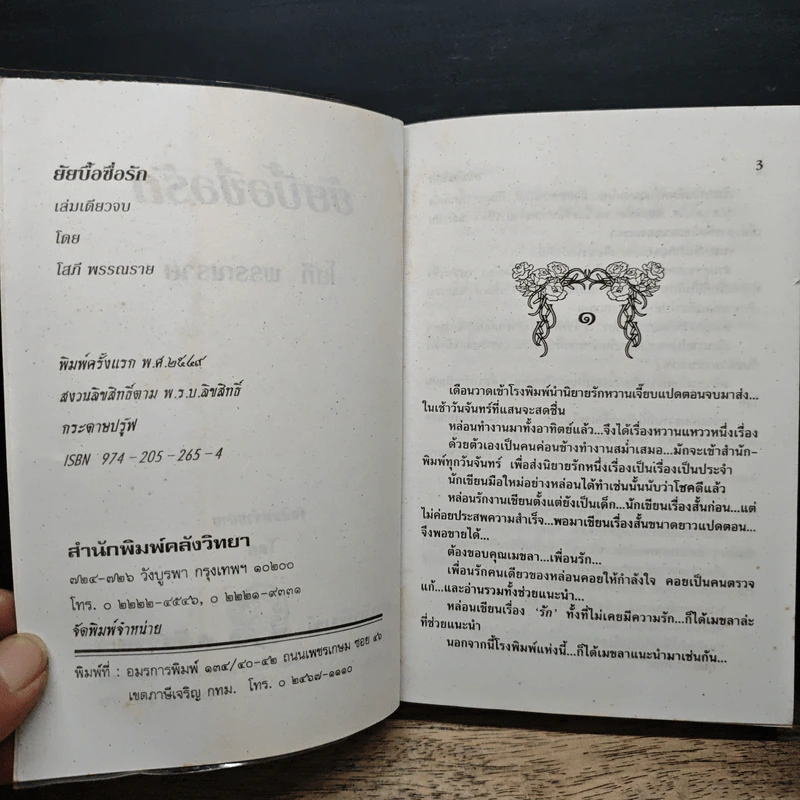 ยัยบื้อซื่อรัก
เล่มเดียวจบ
โดย
โสภี พรรณราย
พิมพ์ครั้งแรก พ.ศ.๒๕๔๙
สงวนลิขสิทธิ์ตาม พ.ร.บ.ลิขสิทธิ์
กระดาษปรู๊ฟ
ISBN 974-205-265-4
สำนักพิมพ์คลังวิทยา
๗๒๔-๗๒๖ วังบูรพา กรุงเทพฯ ๑๐๒๐๐
โทร. ๐ ๒๒๒๒-๔๕๔๖, ๐ ๒๒๒๑-๙๓๓๑
จัดพิมพ์จำหน่าย
พิมพ์ที่ : อมรการพิมพ์ ๑๓๔/๔๐-๔๒ ถนนเพชรเกษม ซอย ๔๖
เขตภาษีเจริญ กทม. โทร. ๐ ๒๔๖๗-๑๑๑๐
3
๑
เดือนวาดเข้าโรงพิมพ์นำนิยายรักหวานเจี๊ยบแปดตอนจบมาส่ง...
ในเช้าวันจันทร์ที่แสนจะสดชื่น
หล่อนทำงานมาทั้งอาทิตย์แล้ว...จึงได้เรื่องหวานแหววหนึ่งเรื่อง
ด้วยตัวเองเป็นคนค่อนข้างทำงานสม่ำเสมอ...มักจะเข้าสำนัก-
พิมพ์ทุกวันจันทร์ เพื่อส่งนิยายรักหนึ่งเรื่องเป็นเรื่องเป็นประจำ
นักเขียนมือใหม่อย่างหล่อนได้ทำเช่นนั้นนับว่าโชคดีแล้ว
หล่อนรักงานเขียนตั้งแต่ยังเป็นเด็ก...นักเขียนเรื่องสั้นก่อน...แต่
ไม่ค่อยประสพความสำเร็จ...พอมาเขียนเรื่องสั้นขนาดยาวแปดตอน...
จึงพอขายได้...
ต้องขอบคุณเมขลา...เพื่อนรัก...
เพื่อนรักคนเดียวของหล่อนคอยให้กำลังใจ คอยเป็นคนตรวจ
แก้...และอ่านรวมทั้งช่วยแนะนำ...
หล่อนเขียนเรื่อง 'รัก' ทั้งที่ไม่เคยมีความรัก...ก็ได้เมขลาล่ะ
ที่ช่วยแนะนำ
นอกจากนี้โรงพิมพ์แห่งนี้...ก็ได้เมขลาแนะนำมาเช่นกัน...